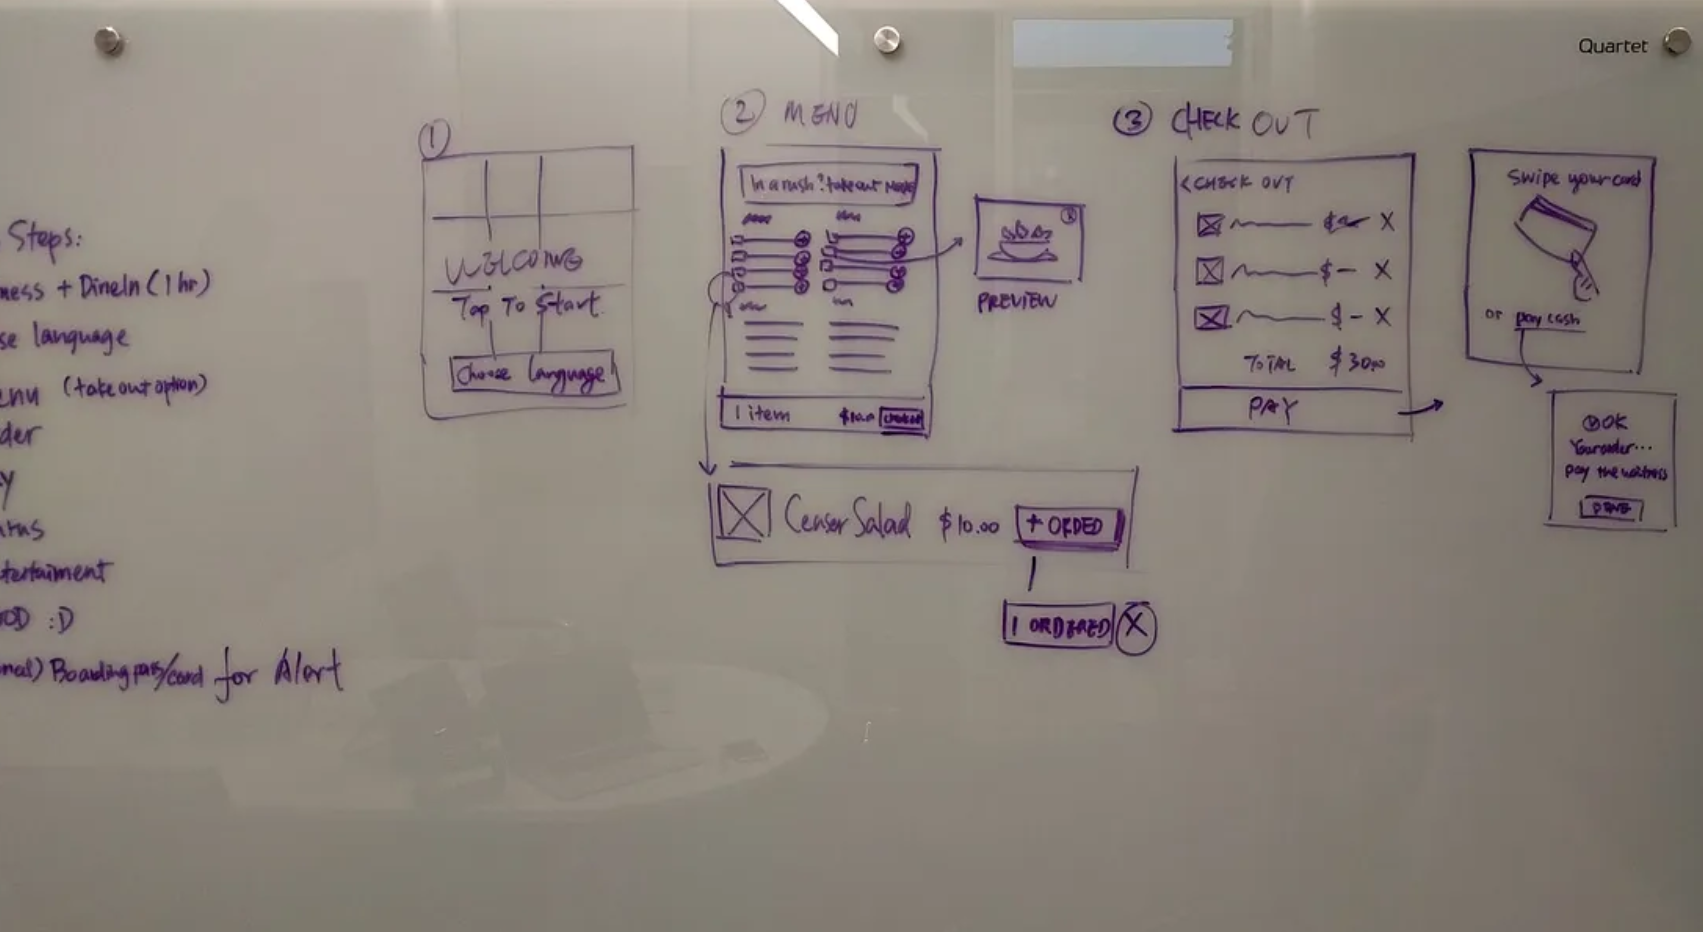 Quartet
Steps:
ness + DineIn (1 hr)
se language
enu (take out option)
der
y
atus
tertaiment
OOD :D
nal) Boarding pass/card for Alert
①
WELCOME
Tap To Start
Choose language
② MENU
In a rush? take out MENU
1 item
PREVIEW
Ceaser Salad $10.00 + ORDED
1 ORDERED X
③ CHECK OUT
< CHECK OUT
$ - X
$ - X
$ - X
TOTAL $30.00
PAY
Swipe your card
or pay cash
OK
Your order...
pay the waitress
DONE